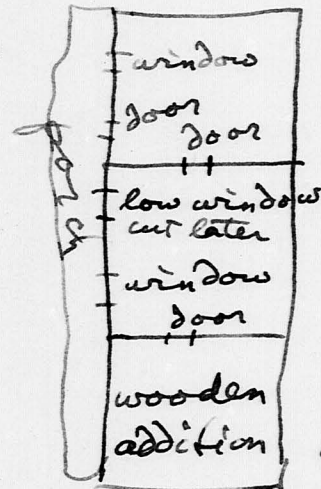 porch
window
door
door
low window
cut later
window
door
wooden
addition